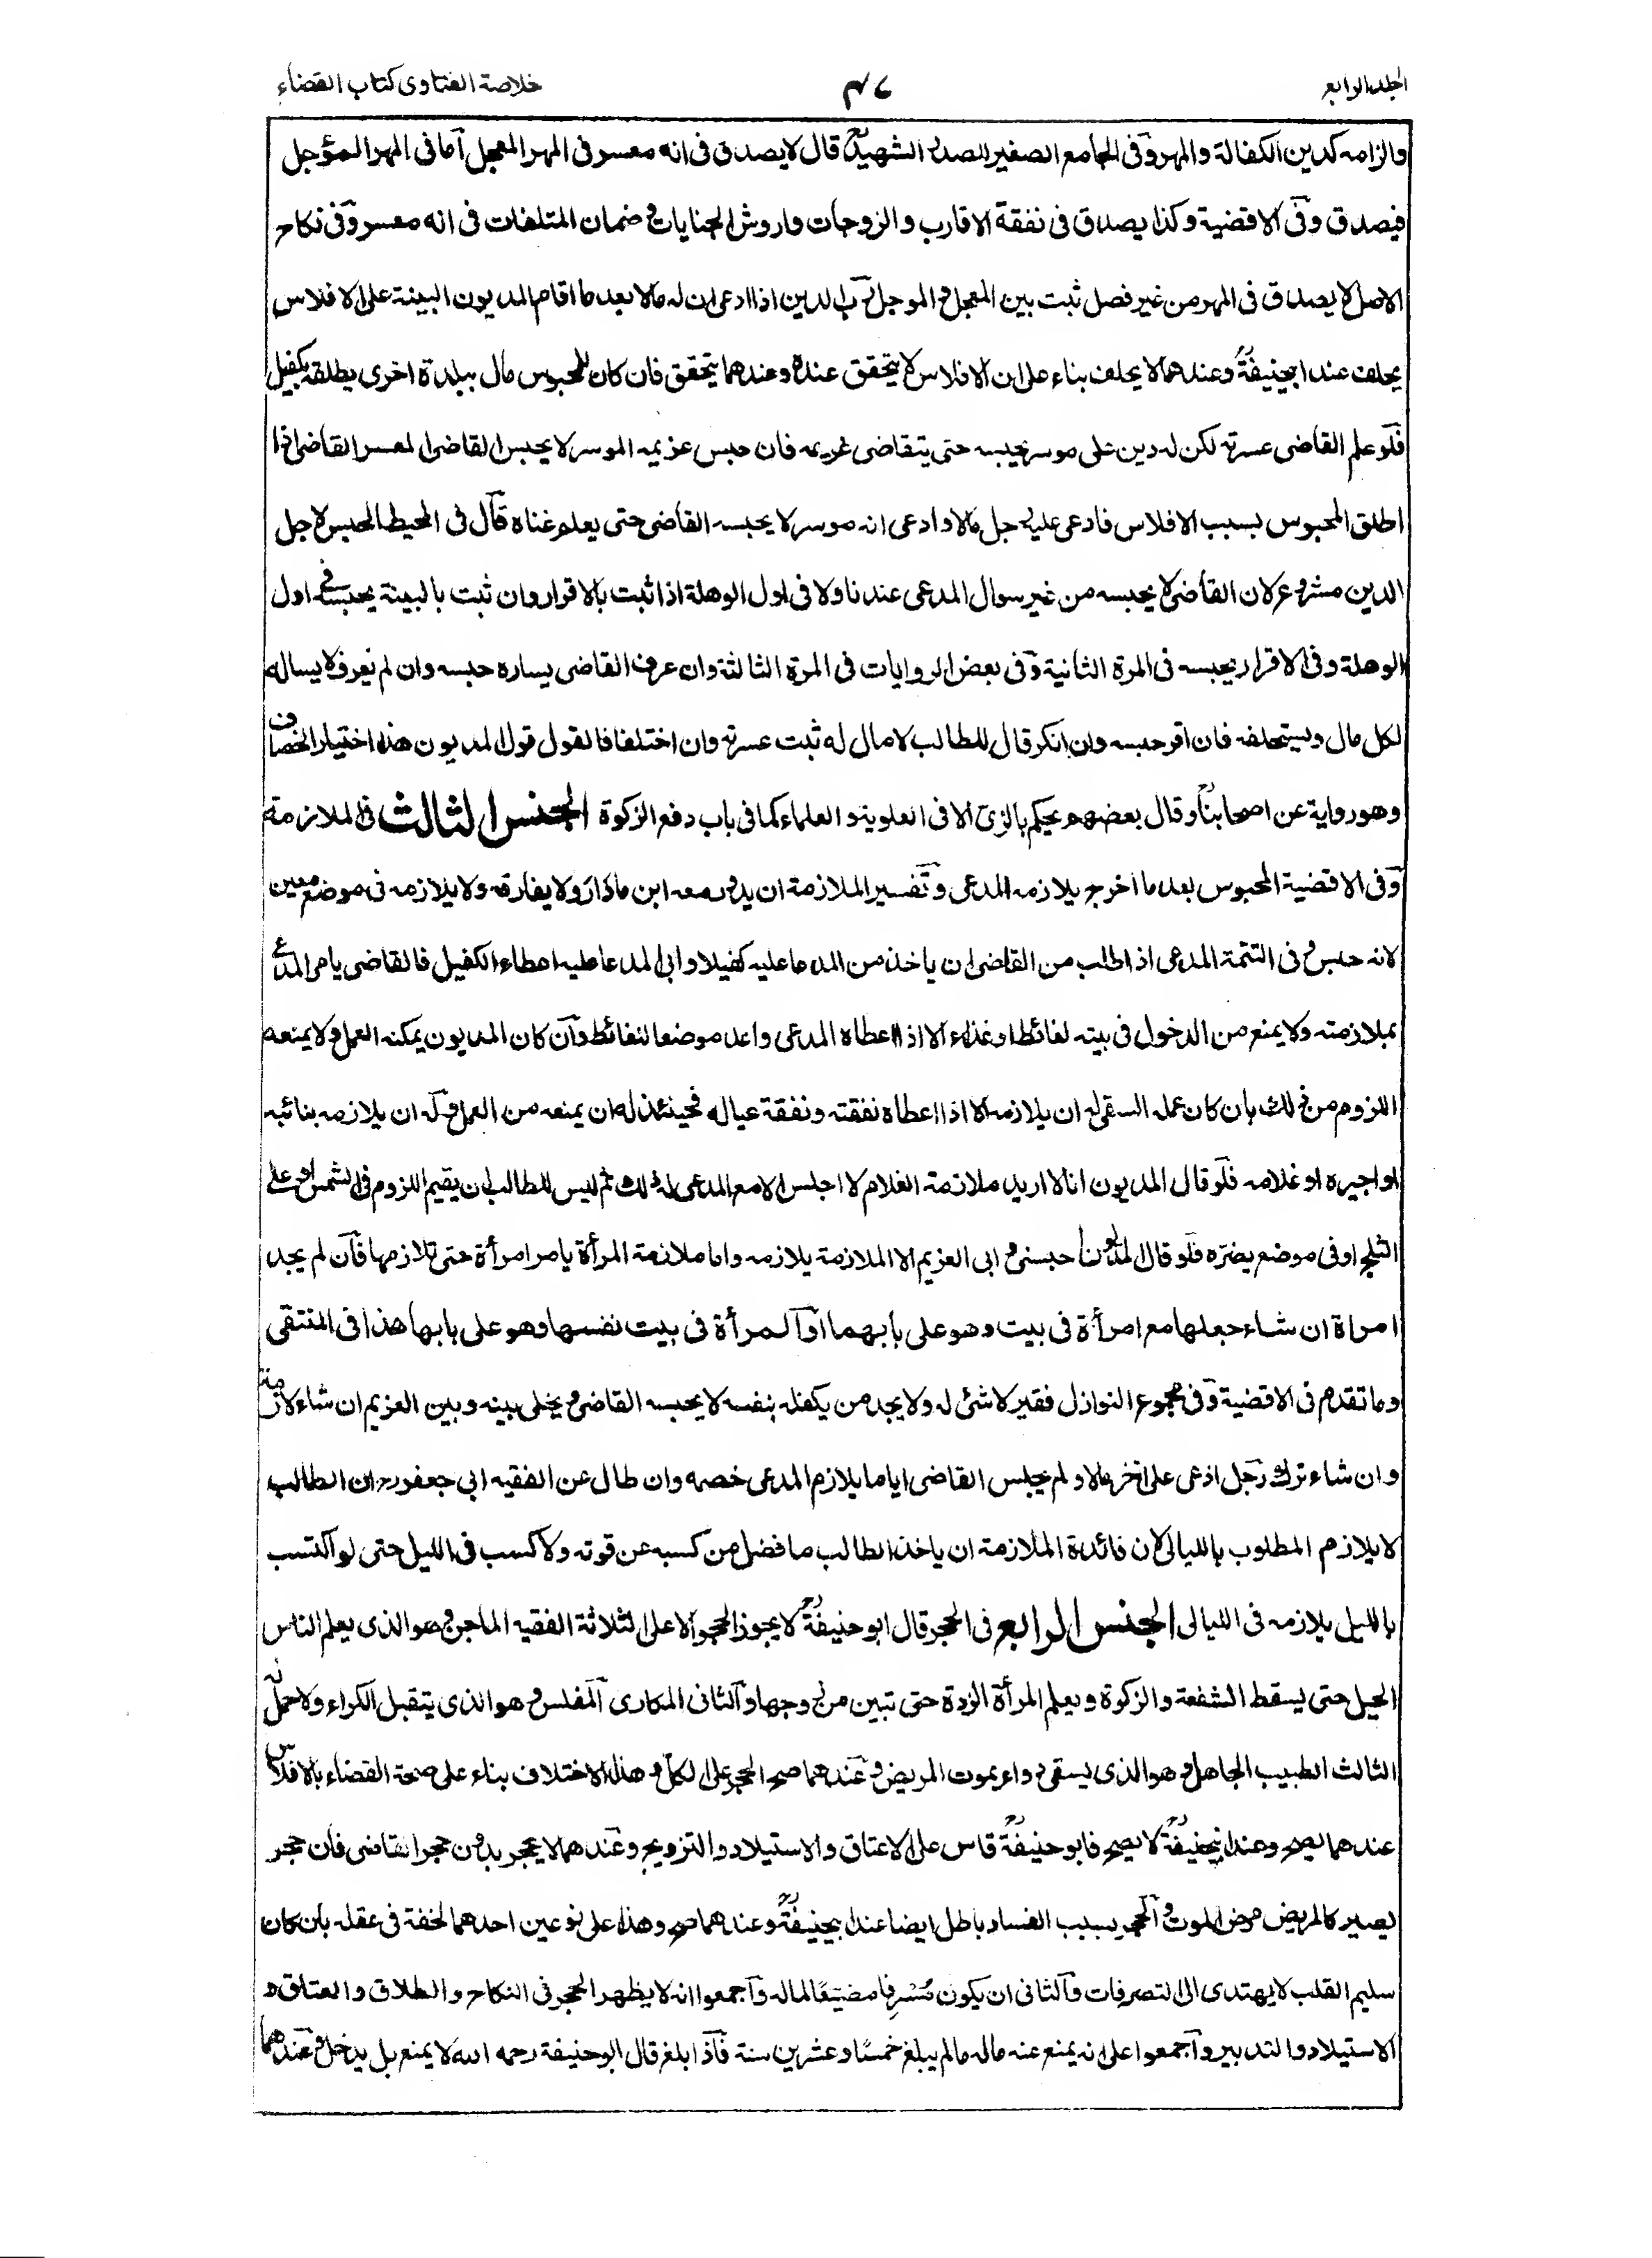 الجلد الرابع
٤٧
خلاصة الفتاوى كتاب القضاء
والزامه كدين الكفالة والمهر وفى الجامع الصغير للصدر الشهيدؒ قال لا يصدق فى انه معسر فى المهر المعجل اما فى المهر المؤجل
فيصدق وفى الاقضية وكذا يصدق فى نفقة الاقارب والزوجات واروش الجنايات و ضمان المتلفات فى انه معسر وفى نكاح
الاصل لا يصدق فى المهر من غير فصل ثبت بين المعجل والموجل رب الدين اذا ادعى ان له مالا بعد ما اقام المديون البينة على الافلاس
يحلف عند ابيحنيفةؒ وعندهما لا يحلف بناء على ان الافلاس لا يتحقق عنده وعندهما يتحقق فان كان للمحبوس مال ببلدة اخرى يطلقه بكفيل
فلو علم القاضى عسرته لكن له دين على موسر يحبسه حتى يتقاضى غريمه فان حبس غريمه الموسر لا يحبس القاضى المعسر القاضى اذا
اطلق المحبوس بسبب الافلاس فادعى عليه رجل مالا وادعى انه موسر لا يحبسه القاضى حتى يعلم غناه قال فى المحيط الحبس لاجل
الدين مشروع لان القاضى لا يحبسه من غير سوال المدعى عندنا ولا فى اول الوهلة اذا ثبت بالاقرار وان ثبت بالبينة يحبسه فى اول
الوهلة وفى الاقرار يحبسه فى المرة الثانية وفى بعض الروايات فى المرة الثالثة وان عرف القاضى يساره حبسه وان لم يعرف لا يساله
لكل مال ويستحلفه فان اقر حبسه وان انكر قال للطالب لا مال له ثبت عسرته وان اختلفا فالقول قول المديون هذا اختيار الخصاف
وهو رواية عن اصحابناؒ وقال بعضهم يحكم بالزى الا فى العلوية و العلماء كما فى باب دفع الزكوة الجنس الثالث فى الملازمة
وفى الاقضية المحبوس بعد ما اخرج يلازمه المدعى وتفسير الملازمة ان يدور معه اين ما دار ولا يفارقه ولا يلازمه فى موضع معين
لانه حبس وفى التتمة المدعى اذا طلب من القاضى ان ياخذ من المدعا عليه كفيلا وابى المدعا عليه اعطاء الكفيل فالقاضى يامر المدعى
بملازمته ولا يمنع من الدخول فى بيته لغائط او غذاء الا اذا اعطاه المدعى واعد موضعا لغائط وان كان المديون يمكنه العمل ولا يمنعه
اللزوم من ذلك بان كان عمله السقى له ان يلازمه الا اذا اعطاه نفقته ونفقة عياله فحينئذ له ان يمنعه من العمل وله ان يلازمه بنائبه
او اجيره او غلامه فلو قال المديون انا لا اريد ملازمة الغلام لا اجلس الا مع المدعى له ذلك ثم ليس للطالب ان يقيم اللزوم فى الشمس او على
الثلج او فى موضع يضره فلو قال المديون احبسنى و ابى الغريم الا الملازمة يلازمه واما ملازمة المرأة يامر امرأة حتى تلازمها فان لم يجد
امراة ان شاء جعلها مع امرأة فى بيت وهو على بابهما او المرأة فى بيت نفسها وهو على بابها هذا فى المنتقى
وما تقدم فى الاقضية وفى مجموع النوازل فقير لا شئ له ولا يجد من يكفله بنفسه لا يحبسه القاضى و يخلى بينه وبين الغريم ان شاء لازمه
وان شاء ترك رجل ادعى على اخر مالا ولم يجلس القاضى اياما يلازم المدعى خصمه وان طال عن الفقيه ابى جعفرؒ ان الطالب
لا يلازم المطلوب بالليالى لان فائدة الملازمة ان ياخذ الطالب ما فضل من كسبه عن قوته ولا كسب فى الليل حتى لو اكتسب
بالليل يلازمه فى الليالى الجنس الرابع فى الحجر قال ابو حنيفةؒ لا يجوز الحجر الا على الثلاثة الفقيه الماجن و هو الذى يعلم الناس
الحيل حتى يسقط الشفعة والزكوة ويعلم المرأة الردة حتى تبين من زوجها والثانى المكارى المفلس و هو الذى يتقبل الكراء ولا حمل له
الثالث الطبيب الجاهل و هو الذى يسقى دواء يموت المريض و عندهما صح الحجر على الكل و هذا الاختلاف بناء على صحة القضاء بالافلاس
عندهما يصح وعند ابيحنيفةؒ لا يصح فابو حنيفةؒ قاس على الاعتاق والاستيلاد والتزويج وعندهما لا يحجر بدون حجر القاضى فان حجر
يصير كالمريض مرض الموت و الحجر بسبب الفساد باطل ايضا عند ابيحنيفةؒ وعندهما صح وهذا على نوعين احدهما لخفة فى عقله بان كان
سليم القلب لا يهتدى الى التصرفات والثانى ان يكون مُسْرِفا مضيّعًا لماله واجمعوا انه لا يظهر الحجر فى النكاح والطلاق والعتاق و
الاستيلاد والتدبير واجمعوا على انه يمنع عنه ماله مالم يبلغ خمسًا وعشرين سنة فاذا بلغ قال ابو حنيفة رحمه الله لا يمنع بل يدخل و عندهما